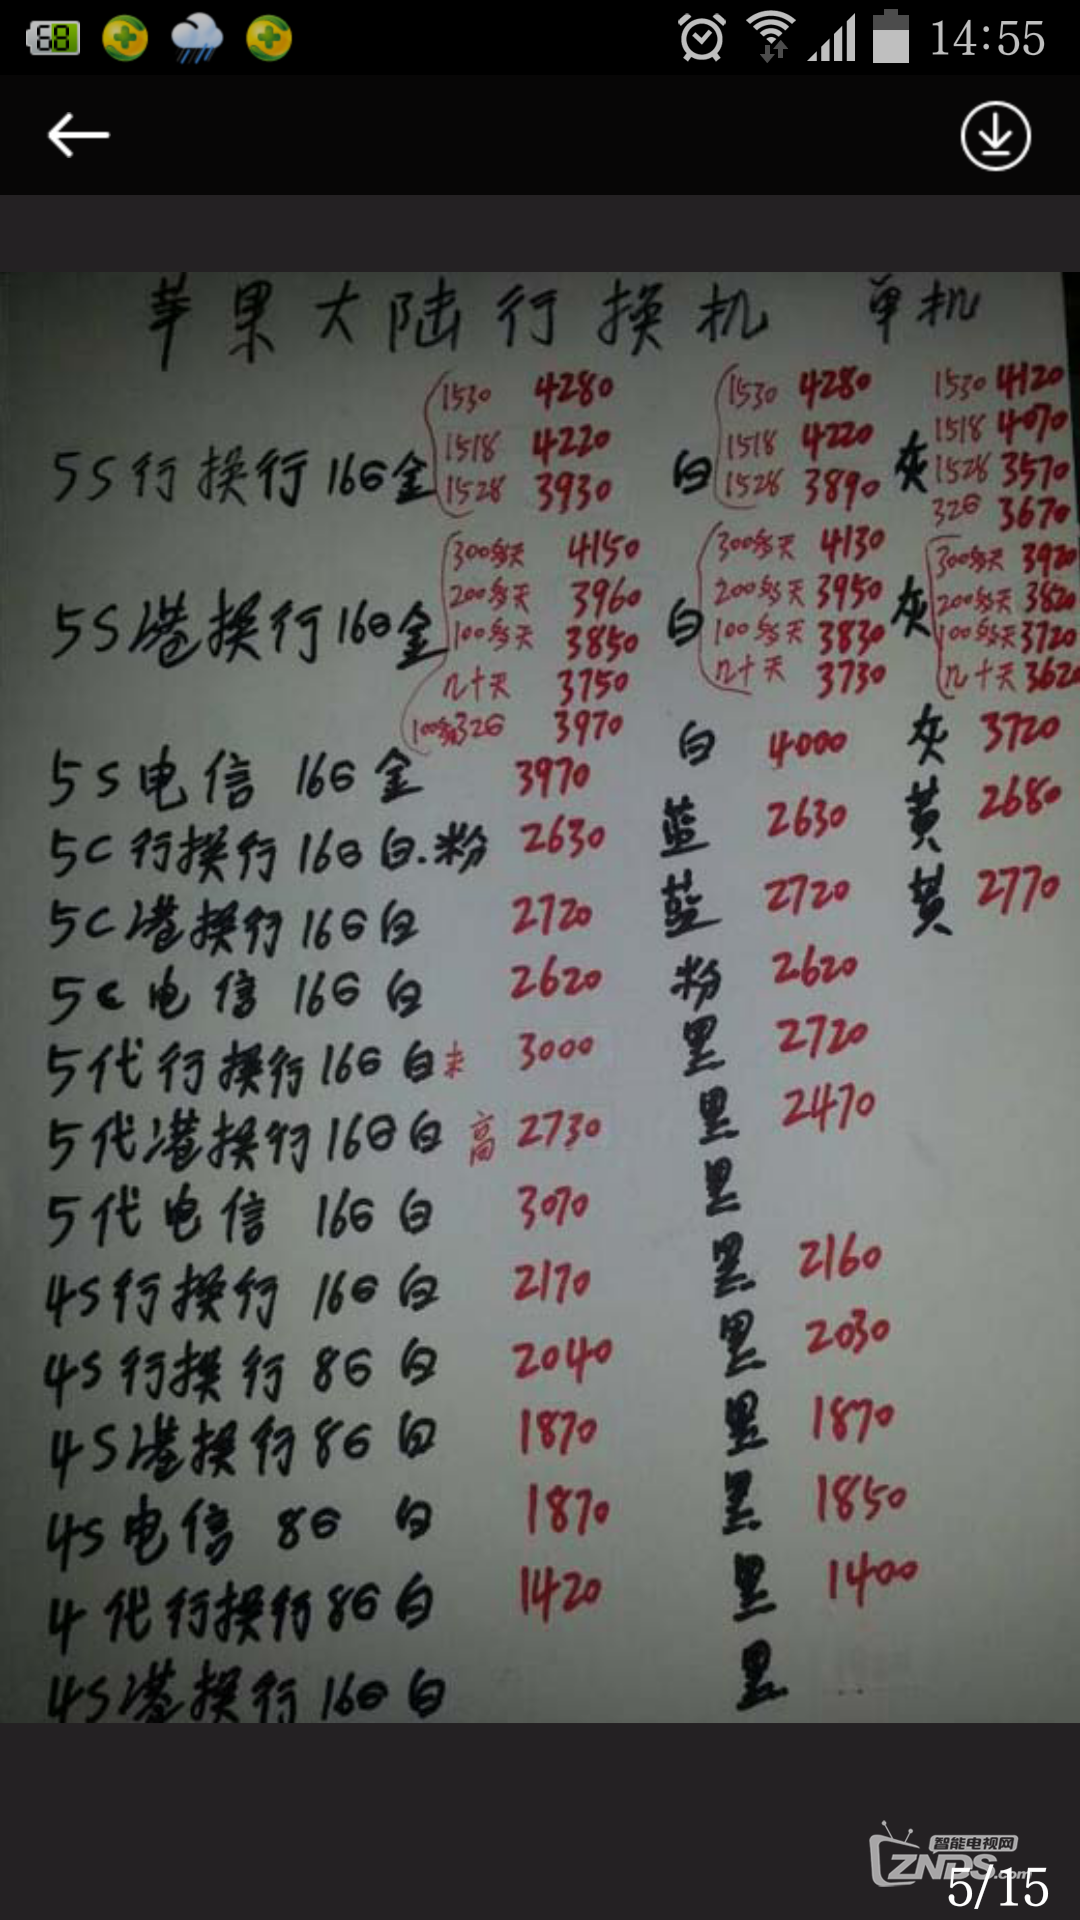 68 14:55
苹果大陆行换机 单机
1530 4280 1530 4280 1530 4120
1518 4220 1518 4220 1518 4070
5S行换行16G金 1528 3930 白 1528 3890 灰 1528 3570
32G 3670
300多天 4150 300多天 4130 300多天 3920
200多天 3960 200多天 3950 200多天 3820
5S港换行16G金 100多天 3850 白 100多天 3830 灰 100多天 3720
几十天 3750 几十天 3730 几十天 3620
100多32G 3970
5S电信 16G 金 3970 白 4000 灰 3720
5C行换行16G白.粉 2630 蓝 2630 黄 2680
5C港换行16G白 2720 蓝 2720 黄 2770
5C电信 16G 白 2620 粉 2620
5代行换行16G白未 3000 黑 2720
5代港换行16G白 高 2730 黑 2470
5代电信 16G 白 3070 黑
4S行换行 16G白 2170 黑 2160
4S行换行 8G 白 2040 黑 2030
4S港换行8G 白 1870 黑 1870
4S电信 8G 白 1870 黑 1850
4代行换行8G白 1420 黑 1400
4S港换行16G白 黑
智能电视网
ZNDS.com
5/15